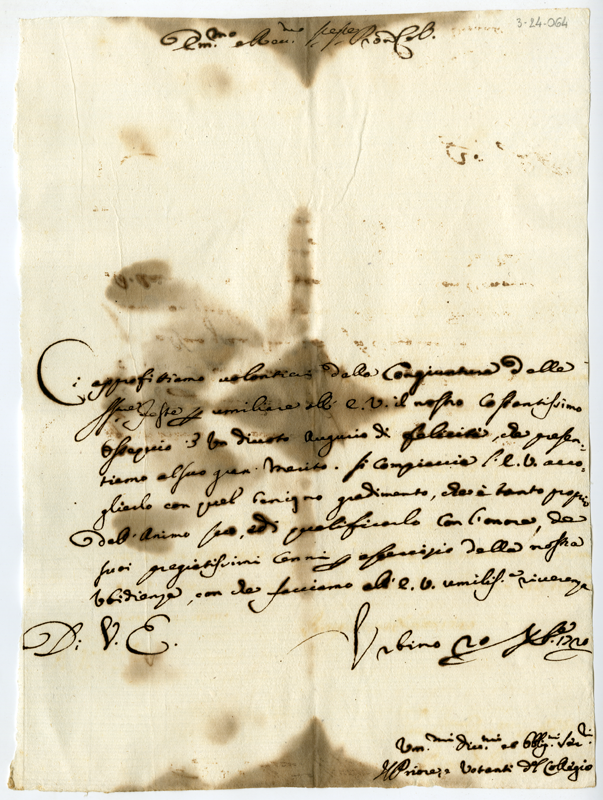 3-24-064
Em.mo e Rev.mo Sig.re Pron Col.
Ci approfittiamo volontieri della Congiuntura delle
Feste umiliare all'E.V. il nostro costantissimo
ossequio un divoto Augurio di felicità, che presen-
tiamo al suo gran Merito. si compiaccia l'E.V. acco-
glierlo con quel benigno gradimento, che è tanto proprio
dell'Animo suo, e di qualificarlo con l'onore, de
suoi pregiatissimi Cenni esercizio della nostra
Ubidienza, con che facciamo all'E.V. umilis.a riverenza
Di V. E.
Urbino 20 Xbre 1720
Um.mi Div.mi ed Obblig.mi Ser.ri
Il Priore, e Votanti del Collegio